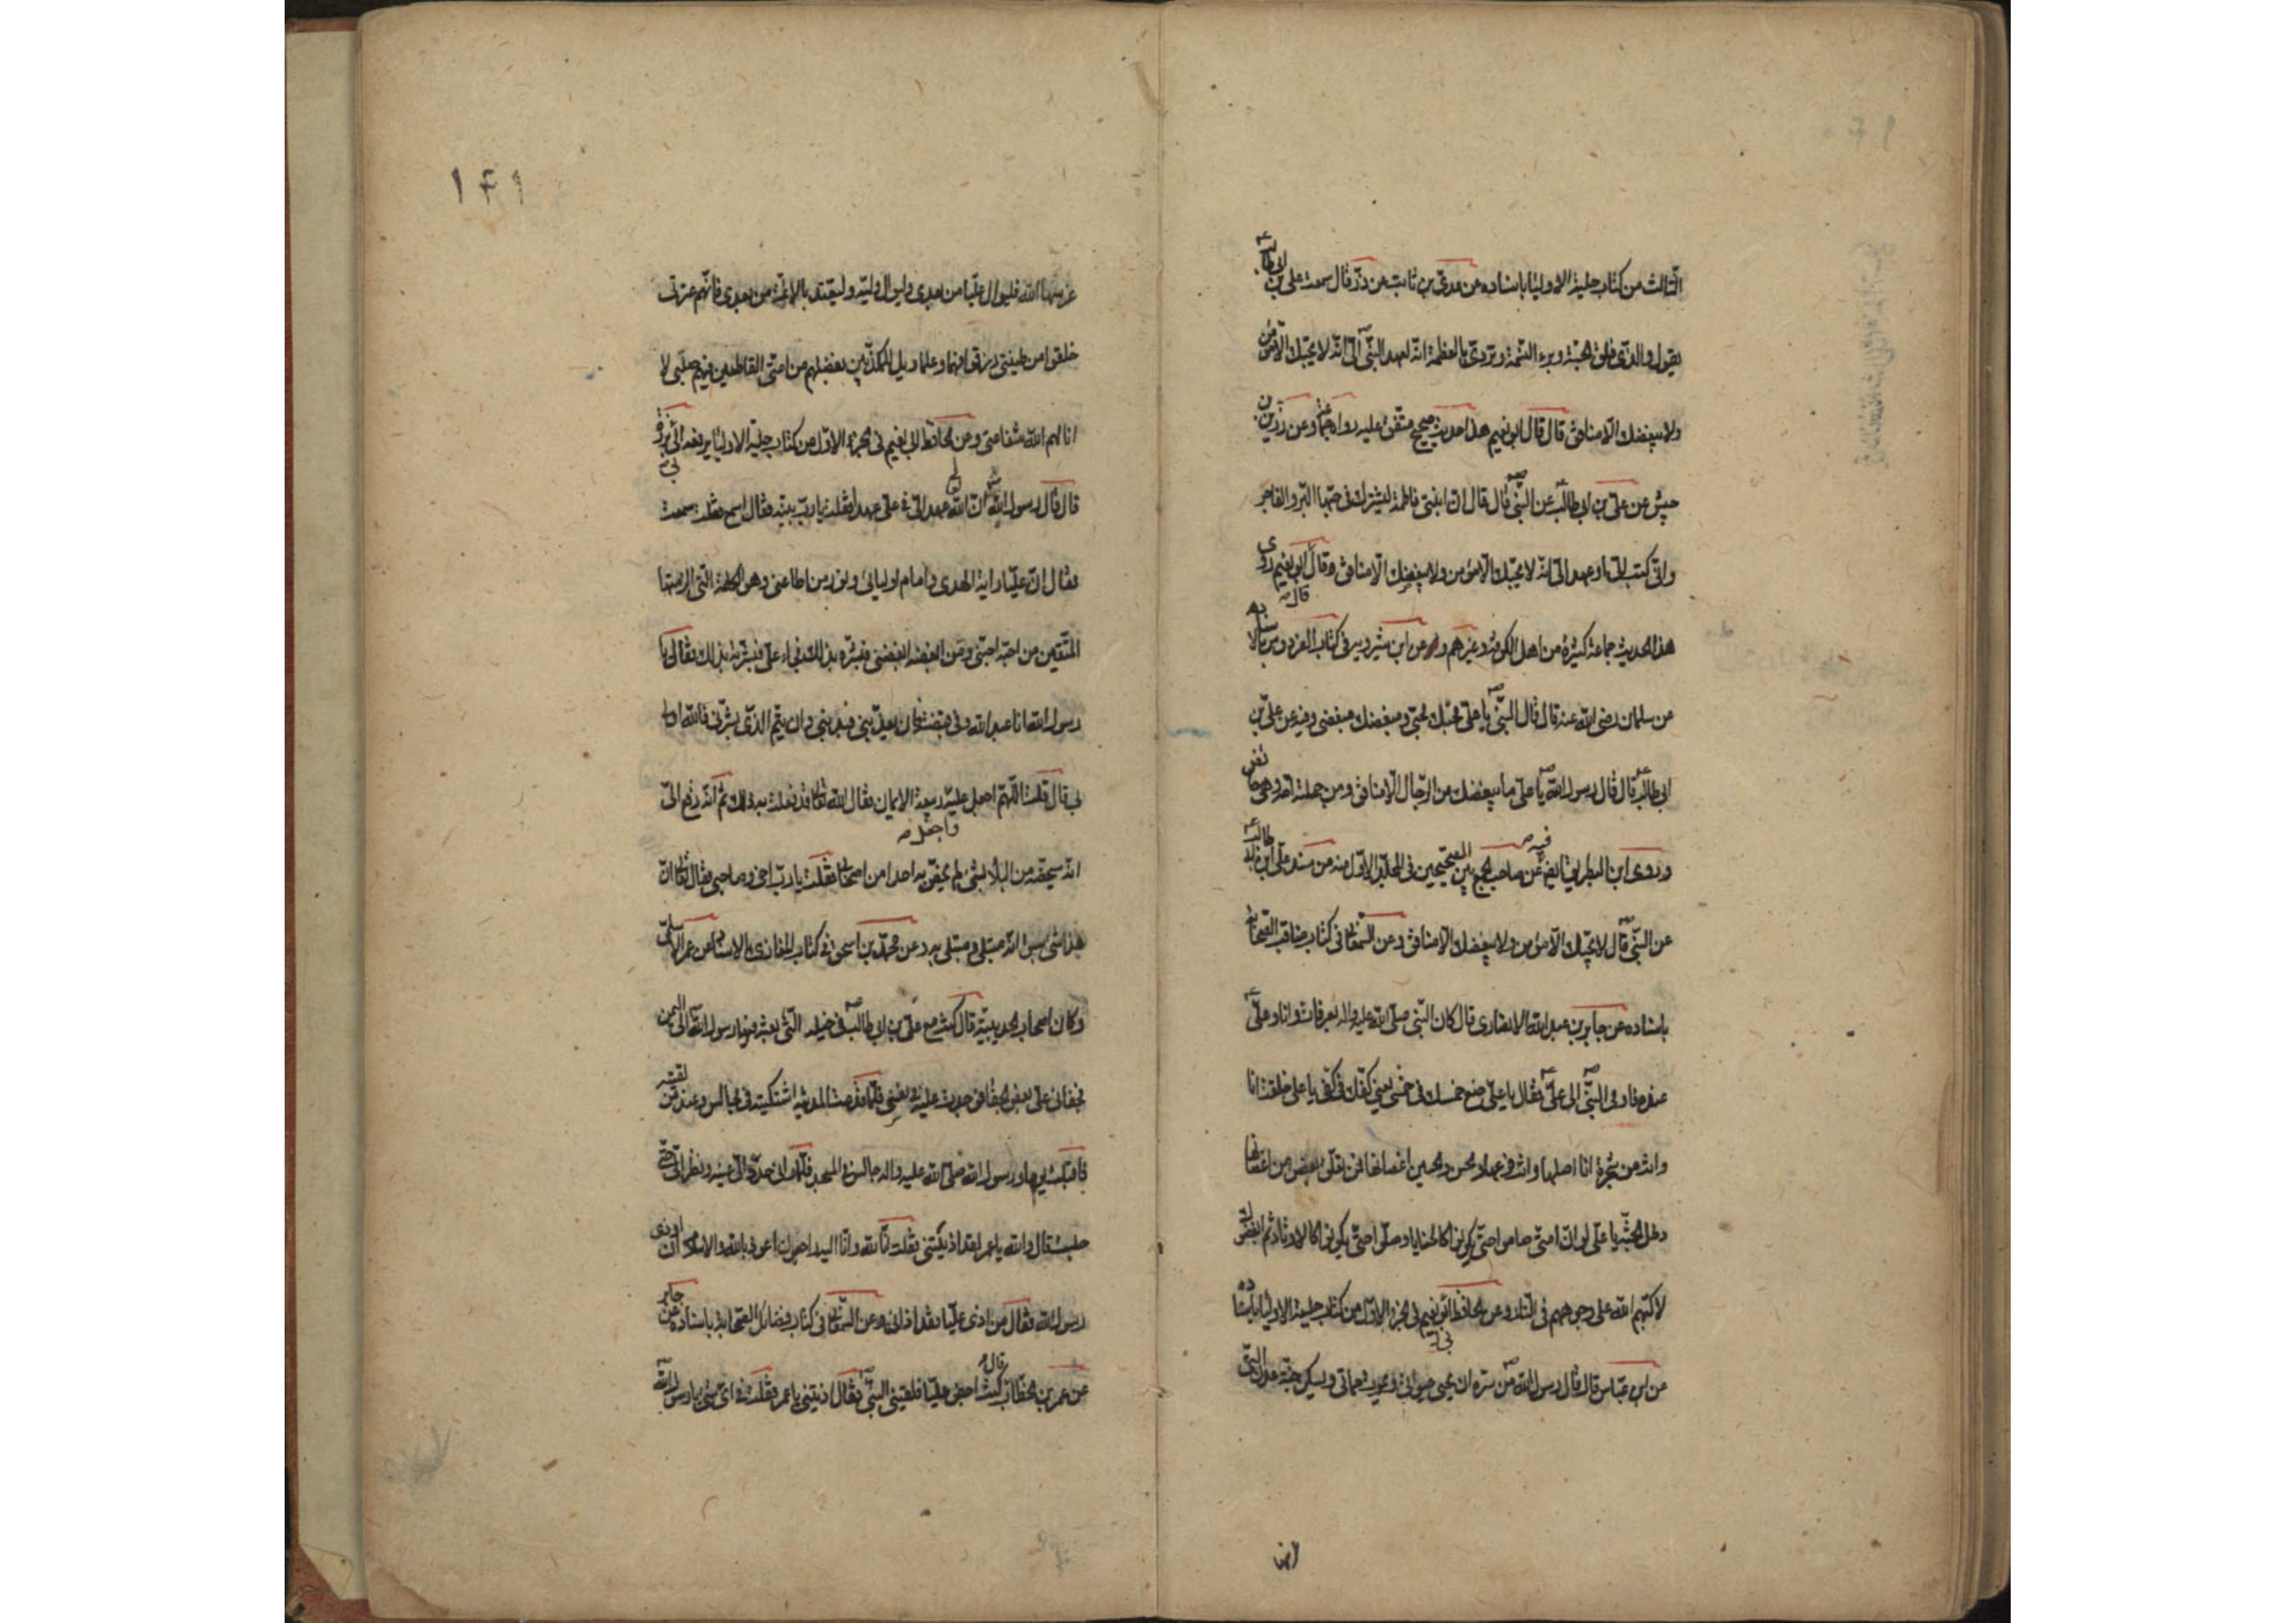 الثالث من كتاب حلية الاولياء باسناده عن عدي بن ثابت عن زر قال سمعت علي بن ابي طالب ع
يقول والذي فلق الحبة وبرء النسمة وتردى بالعظمة انه لعهد النبي الى انه لا يحبك الا مؤمن
ولا يبغضك الا منافق قال قال ابو نعيم هذا حديث صحيح متفق عليه وعن زر بن
حبيش عن علي بن ابيطالب عن النبي ص قال قال ان ابنتي فاطمة ليشترك في حبها البر والفاجر
واني كتب الي او عهد الي انه لا يحبك الا مؤمن ولا يبغضك الا منافق وقال ابو نعيم روى
هذا الحديث جماعة كثيرة من اهل الكوفة وغيرهم وعن ابن شيرويه في كتاب الفردوس بالاسناد
عن سلمان رضي الله عنه قال قال النبي ص يا علي محبك محبي ومبغضك مبغضي وفيه عن علي بن
ابي طالب قال قال رسول الله ص يا علي ما يبغضك من الرجال الا منافق ومن حملته امه وهي حائض
وروى ابن البطريق ايضا عن صاحب الجمع بين الصحيحين في المجلد الاول منه من مسند علي بن ابي طالب ع
عن النبي ص قال لا يحبك الا مؤمن ولا يبغضك الا منافق وعن السمعاني في كتاب مناقب الصحابة
باسناده عن جابر بن عبد الله الانصاري قال كان النبي صلى الله عليه واله بعرفات وانا وعلي ع
عنده فاومى النبي ص الى علي ع فقال يا علي ضع خمسك في خمسي يعني كفك في كفي يا علي خلقت انا
وانت من شجرة انا اصلها وانت فرعها والحسن والحسين اغصانها فمن تعلق بغصن من اغصانها
دخل الجنة يا علي لو ان امتي صاموا حتى يكونوا كالحنايا وصلوا حتى يكونوا كالاوتاد ثم ابغضوك
لاكبهم الله على وجوههم في النار وعن الحافظ ابو نعيم في الجزء الاول من كتاب حلية الاولياء باسناده
عن ابن عباس قال قال رسول الله ص من سره ان يحيى حيوتي ويموت مماتي ويسكن جنة عدن التي
غرسها الله فليوال عليا من بعدي وليوال وليه وليقتد بالائمة من بعدي فانهم عترتي
خلقوا من طينتي رزقوا فهما وعلما ويل للمكذبين بفضلهم من امتي القاطعين فيهم صلتي لا
انالهم الله شفاعتي وعن الحافظ ابي نعيم في الجزء الاول من كتاب حلية الاولياء يرفعه الى ابي برزة
قال قال رسول الله ص ان الله عهد الي في علي عهدا فقلت يا رب بينه لي فقال اسمع فقلت سمعت
فقال ان عليا راية الهدى وامام اوليائي ونور من اطاعني وهو الكلمة التي الزمتها
المتقين من احبه احبني ومن ابغضه ابغضني فبشره بذلك فجاء علي فبشرته بذلك فقال يا
رسول الله انا عبد الله وفي قبضته فان يعذبني فبذنبي وان يتم الذي بشرتني فالله اولى
بي قال قلت اللهم اجعل ربيعه الايمان فقال الله تعالى قد فعلت به ذلك ثم انه رفع الي
انه سيخصه من البلاء بشيء لم يخص به احدا من اصحابي فقلت يا رب اخي وصاحبي فقال تعالى ان
هذا شيء سبق انه مبتلى ومبتلى به وعن محمد بن اسحق في كتاب المغازي بالاسناد عن عمر الاسلمي
وكان اصحاب الحديبية قال كنت مع علي بن ابي طالب في خيله التي بعثه فيها رسول الله ص الى اليمن
فجفاني علي بعض الجفا فوجدت عليه في نفسي فلما قدمت المدينة اشتكيته في مجالس وعند من لقيته
فاقبلت يوما ورسول الله صلى الله عليه واله جالس في المسجد فلما راني الى عينيه ونظر الي حتى
جلست فقال والله يا عمر لقد اذيتني فقلت انا لله وانا اليه راجعون اعوذ بالله والاسلام ان اوذي
رسول الله فقال من اذى عليا فقد اذاني وعن السمعاني في كتاب فضائل الصحابة باسناده عن جابر
عن عمر بن الخطاب قال كنت عليا فلقيني النبي ص فقال اذيتني يا عمر فقلت في اي شيء يا رسول الله
١٤١